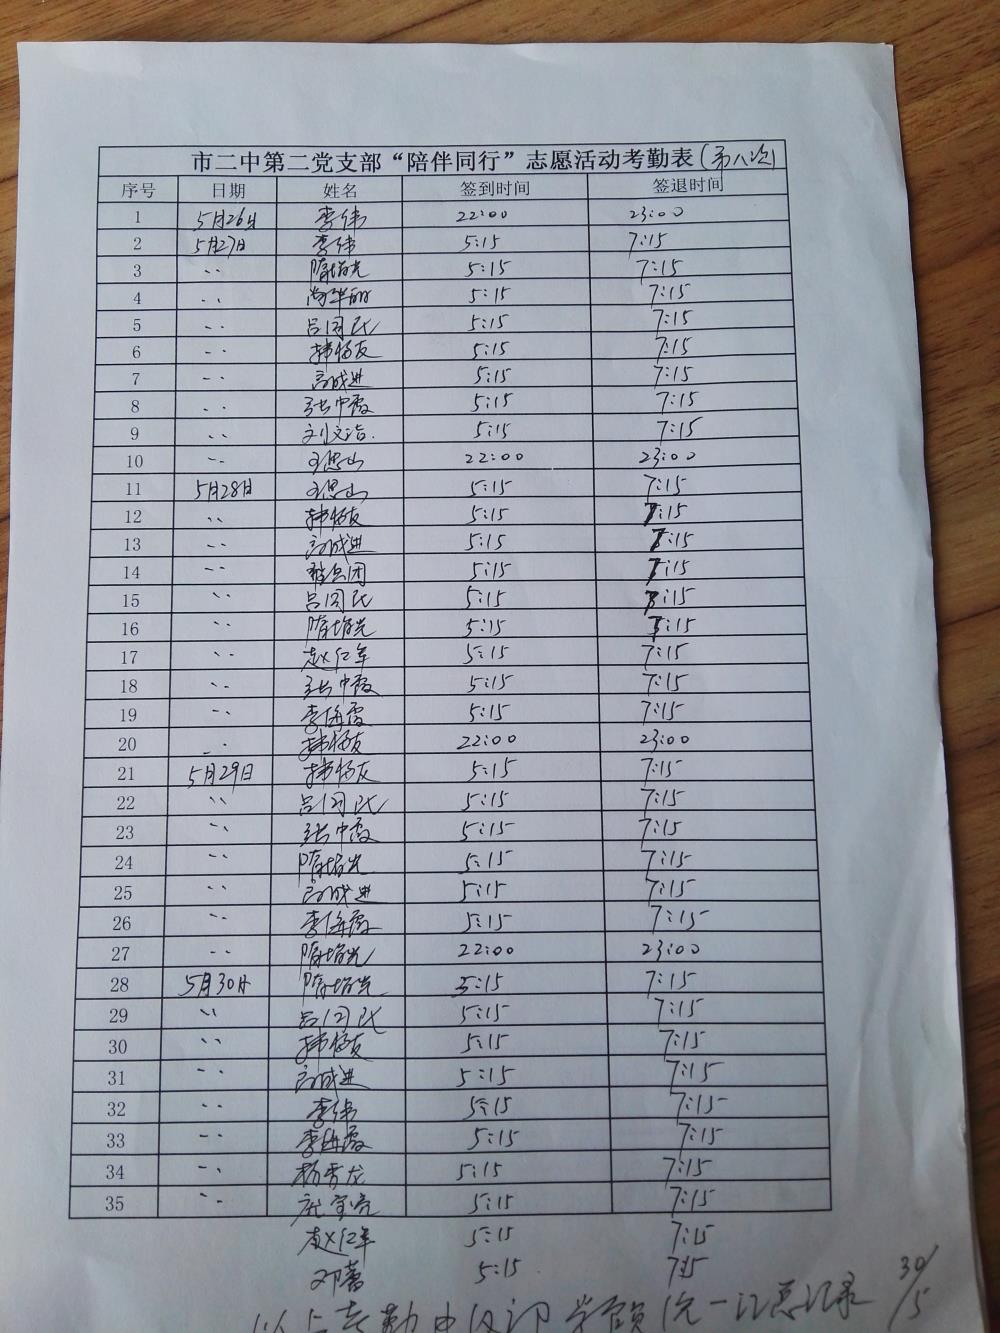 市二中第二党支部“陪伴同行”志愿活动考勤表(第八次)
序号 日期 姓名 签到时间 签退时间
1 5月26日 李伟 22:00 23:00
2 5月27日 李伟 5:15 7:15
3 〃 隋培光 5:15 7:15
4 〃 5:15 7:15
5 〃 吕同民 5:15 7:15
6 〃 韩杨友 5:15 7:15
7 〃 高成进 5:15 7:15
8 〃 张中霞 5:15 7:15
9 〃 刘文洁 5:15 7:15
10 〃 王思山 22:00 23:00
11 5月28日 王思山 5:15 7:15
12 〃 韩杨友 5:15 7:15
13 〃 高成进 5:15 7:15
14 〃 5:15 7:15
15 〃 吕同民 5:15 7:15
16 〃 隋培光 5:15 7:15
17 〃 赵仁军 5:15 7:15
18 〃 张中霞 5:15 7:15
19 〃 李海霞 5:15 7:15
20 〃 韩杨友 22:00 23:00
21 5月29日 韩杨友 5:15 7:15
22 〃 吕同民 5:15 7:15
23 〃 张中霞 5:15 7:15
24 〃 隋培光 5:15 7:15
25 〃 高成进 5:15 7:15
26 〃 李海霞 5:15 7:15
27 〃 隋培光 22:00 23:00
28 5月30日 隋培光 5:15 7:15
29 〃 吕同民 5:15 7:15
30 〃 韩杨友 5:15 7:15
31 〃 高成进 5:15 7:15
32 〃 李伟 5:15 7:15
33 〃 李海霞 5:15 7:15
34 〃 杨秀龙 5:15 7:15
35 〃 5:15 7:15
赵仁军 5:15 7:15
邓蕾 5:15 7:15
以上考勤由 统一汇总记录 30/5